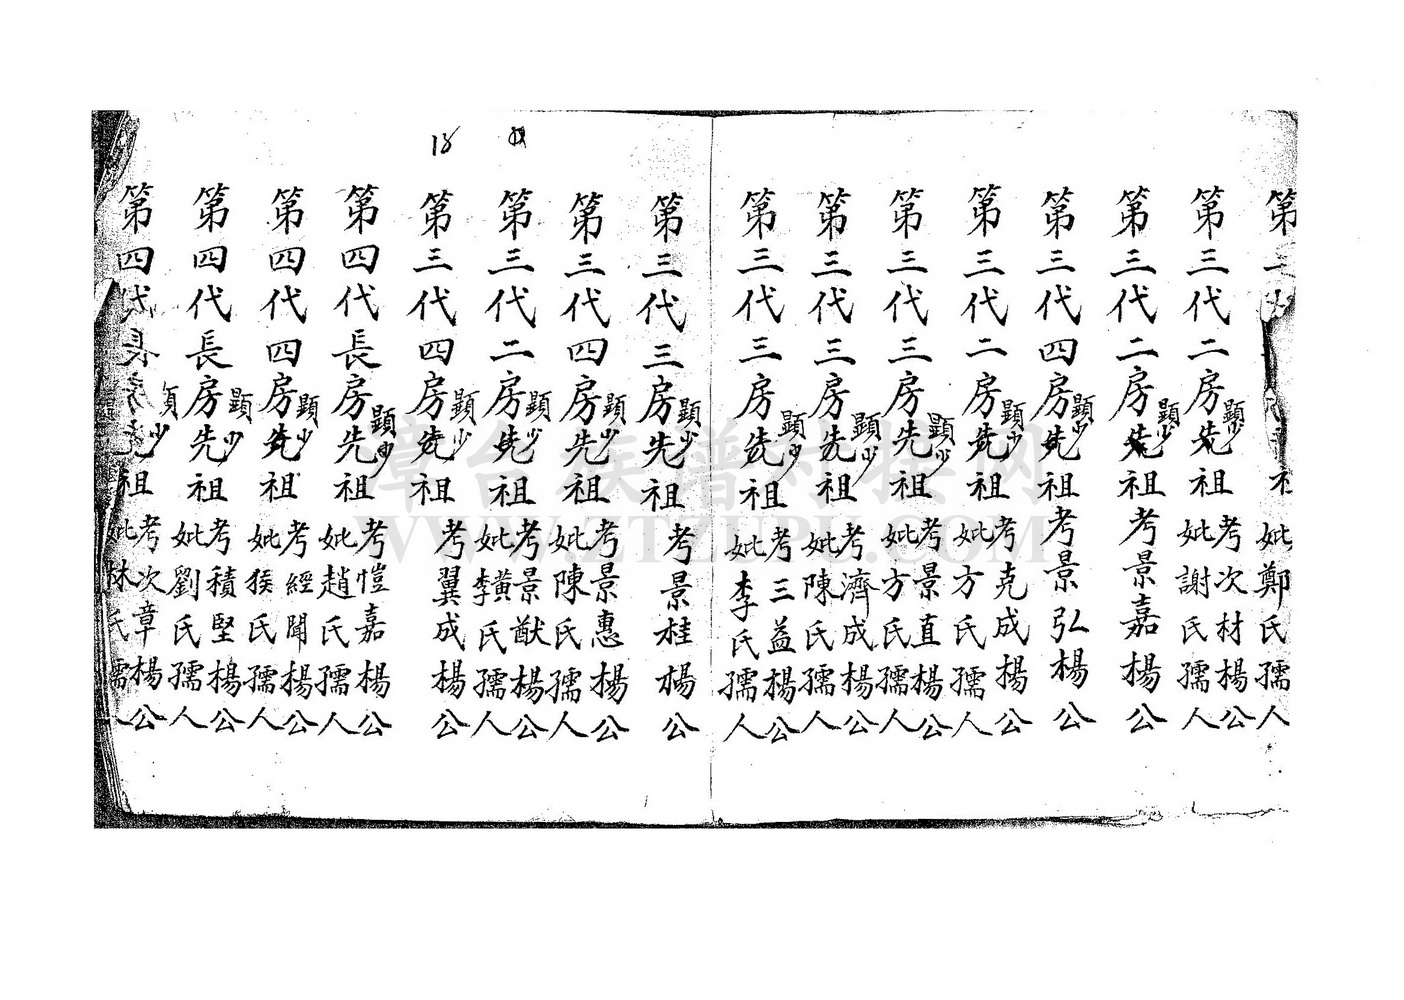 18
第三
妣鄭氏孺人
第三代二房先祖
顕少
考次材楊公
妣謝氏孺人
第三代二房先祖
顕少
考景嘉楊公
第三代四房先祖
顕少
考景弘楊公
第三代二房先祖
顕少
考克成楊公
妣方氏孺人
第三代三房先祖
顕少
考景直楊公
妣方氏孺人
第三代三房先祖
顕少
考濟成楊公
妣陳氏孺人
第三代三房先祖
顕少
考三益楊公
妣李氏孺人
第三代三房先祖
顕少
考景桂楊公
第三代四房先祖
顕少
考景惠楊公
妣陳氏孺人
第三代二房先祖
顕少
考景猷楊公
妣李氏孺人
第三代四房先祖
顕少
考翼成楊公
第四代長房先祖
顕少
考愷嘉楊公
妣趙氏孺人
第四代四房先祖
顕少
考經聞楊公
妣侯氏孺人
第四代長房先祖
顕少
考積堅楊公
妣劉氏孺人
第四代長
先祖
少
考次章楊公
妣林氏孺人
漳台族谱对接网
WWW.ZTZUPU.COM